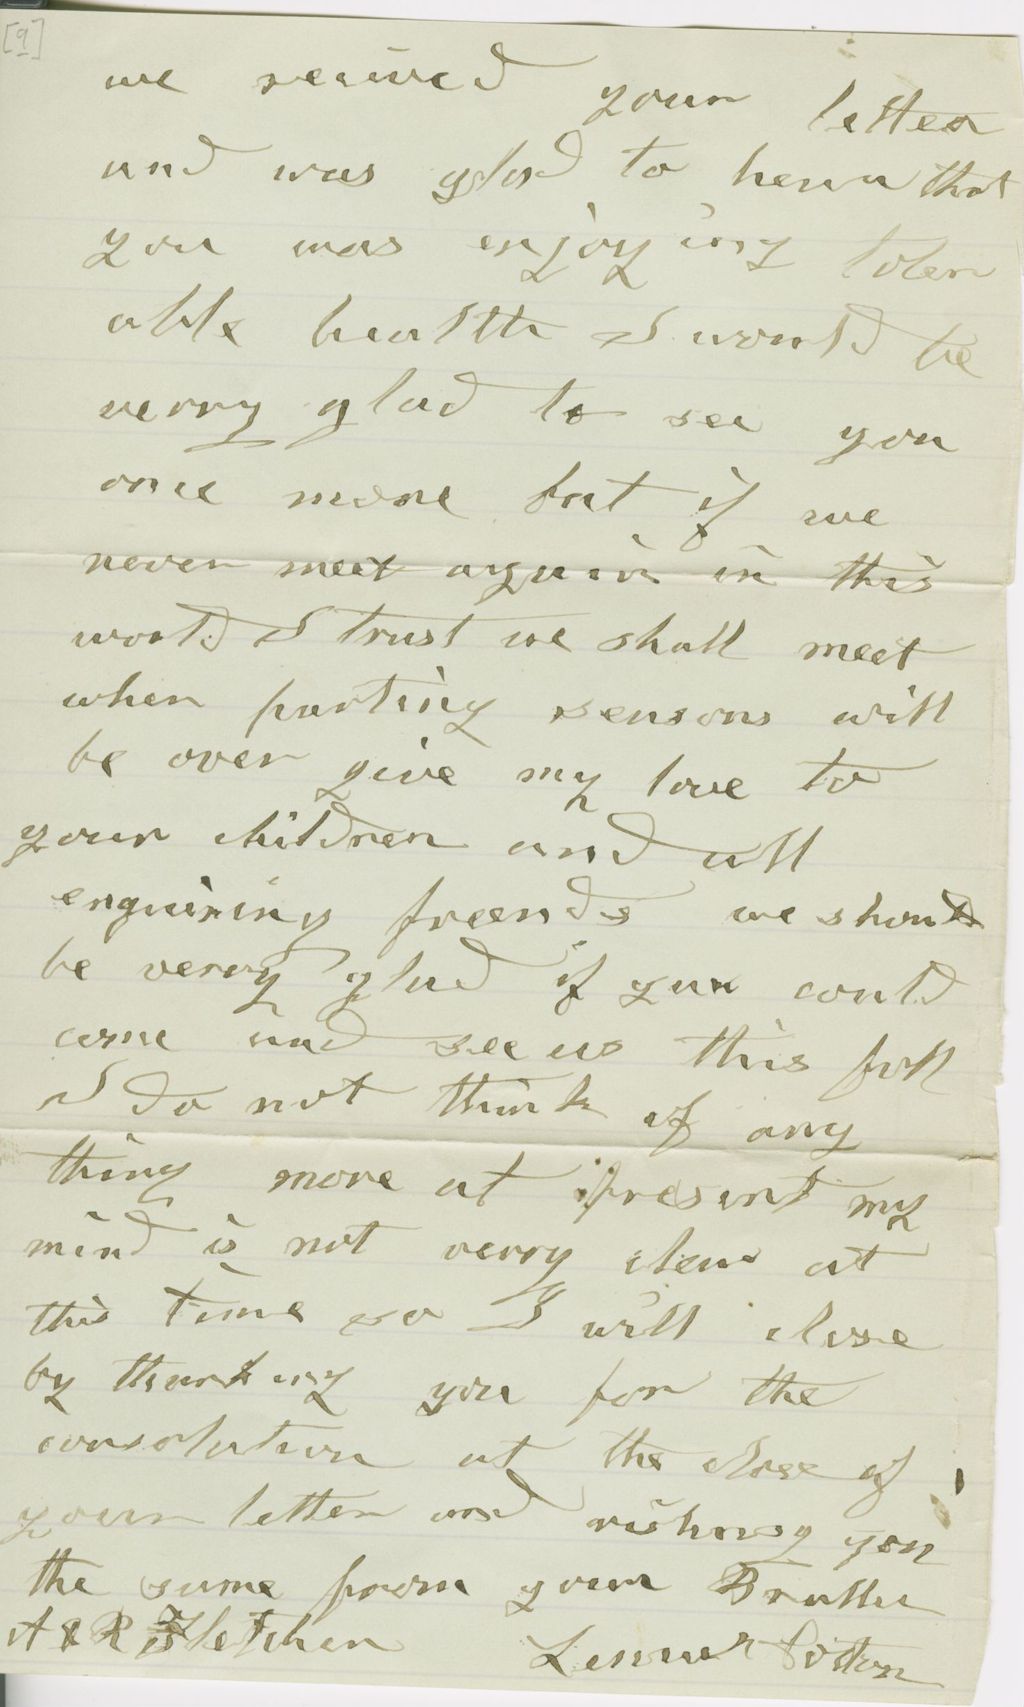 [9]
we reiived your letter
and was glad to hear that
you was enjoying toler
able health I would be
verry glad to see you
once more but if we
never meet again in this
world I trust we shall meet
when parting seasons will
be over give my love to
your children and all
enquiring freends we should
be verry glad if you could
come and see us this fall
I do not think of any
thing more at present my
mind is not verry clear at
this time so I will close
by thanking you for the
consolation at the close of
your letter and wishing you
the same from your Brother
A & R Fletcher Lemuel